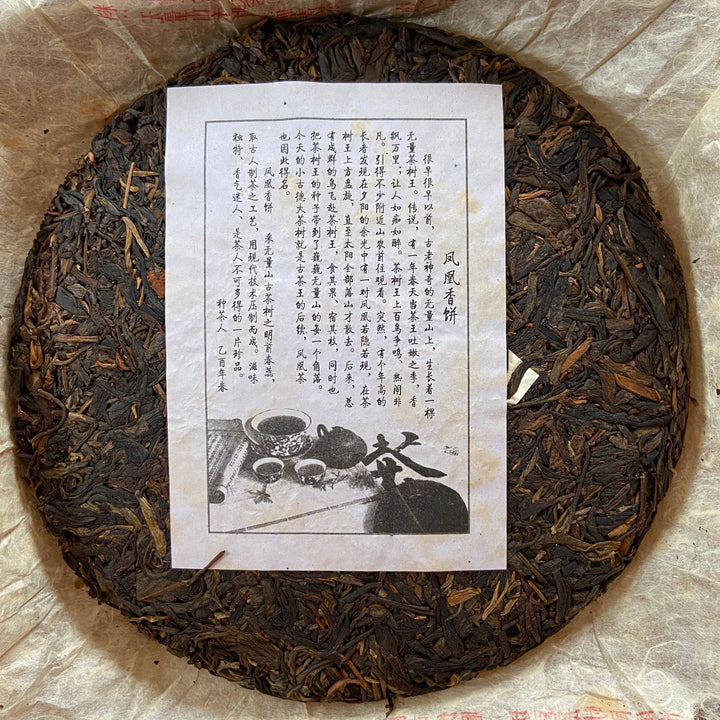 凤凰香饼
很早很早以前，古老神奇的无量山上，生长着一棵
无量茶树王。传说，有一年春天当茶王吐嫩之季，香
飘万里；让人如痴如醉。茶树王上百鸟争鸣，热闹非
凡。引得不少附近山农前往观看。突然，有个年高的
长者发现在夕阳的余光中有一对凤凰若隐若现，在茶
树王上方盘旋，直至太阳全部落山才散去。后来，总
有成群的鸟飞赴茶树王，食其果，宿其枝，同时也
把茶树王的种子带到了巍巍无量山的每一个角落。
今天的小古德大茶树就是古茶王的后续，凤凰茶
也因此得名。
凤凰香饼 采无量山古茶树之明前春蕊，
取古人制茶之工艺，用现代技术压制而成。滋味
独特、香气迷人，是茶人不可多得的一片珍品。
种茶人 乙酉年春
茶